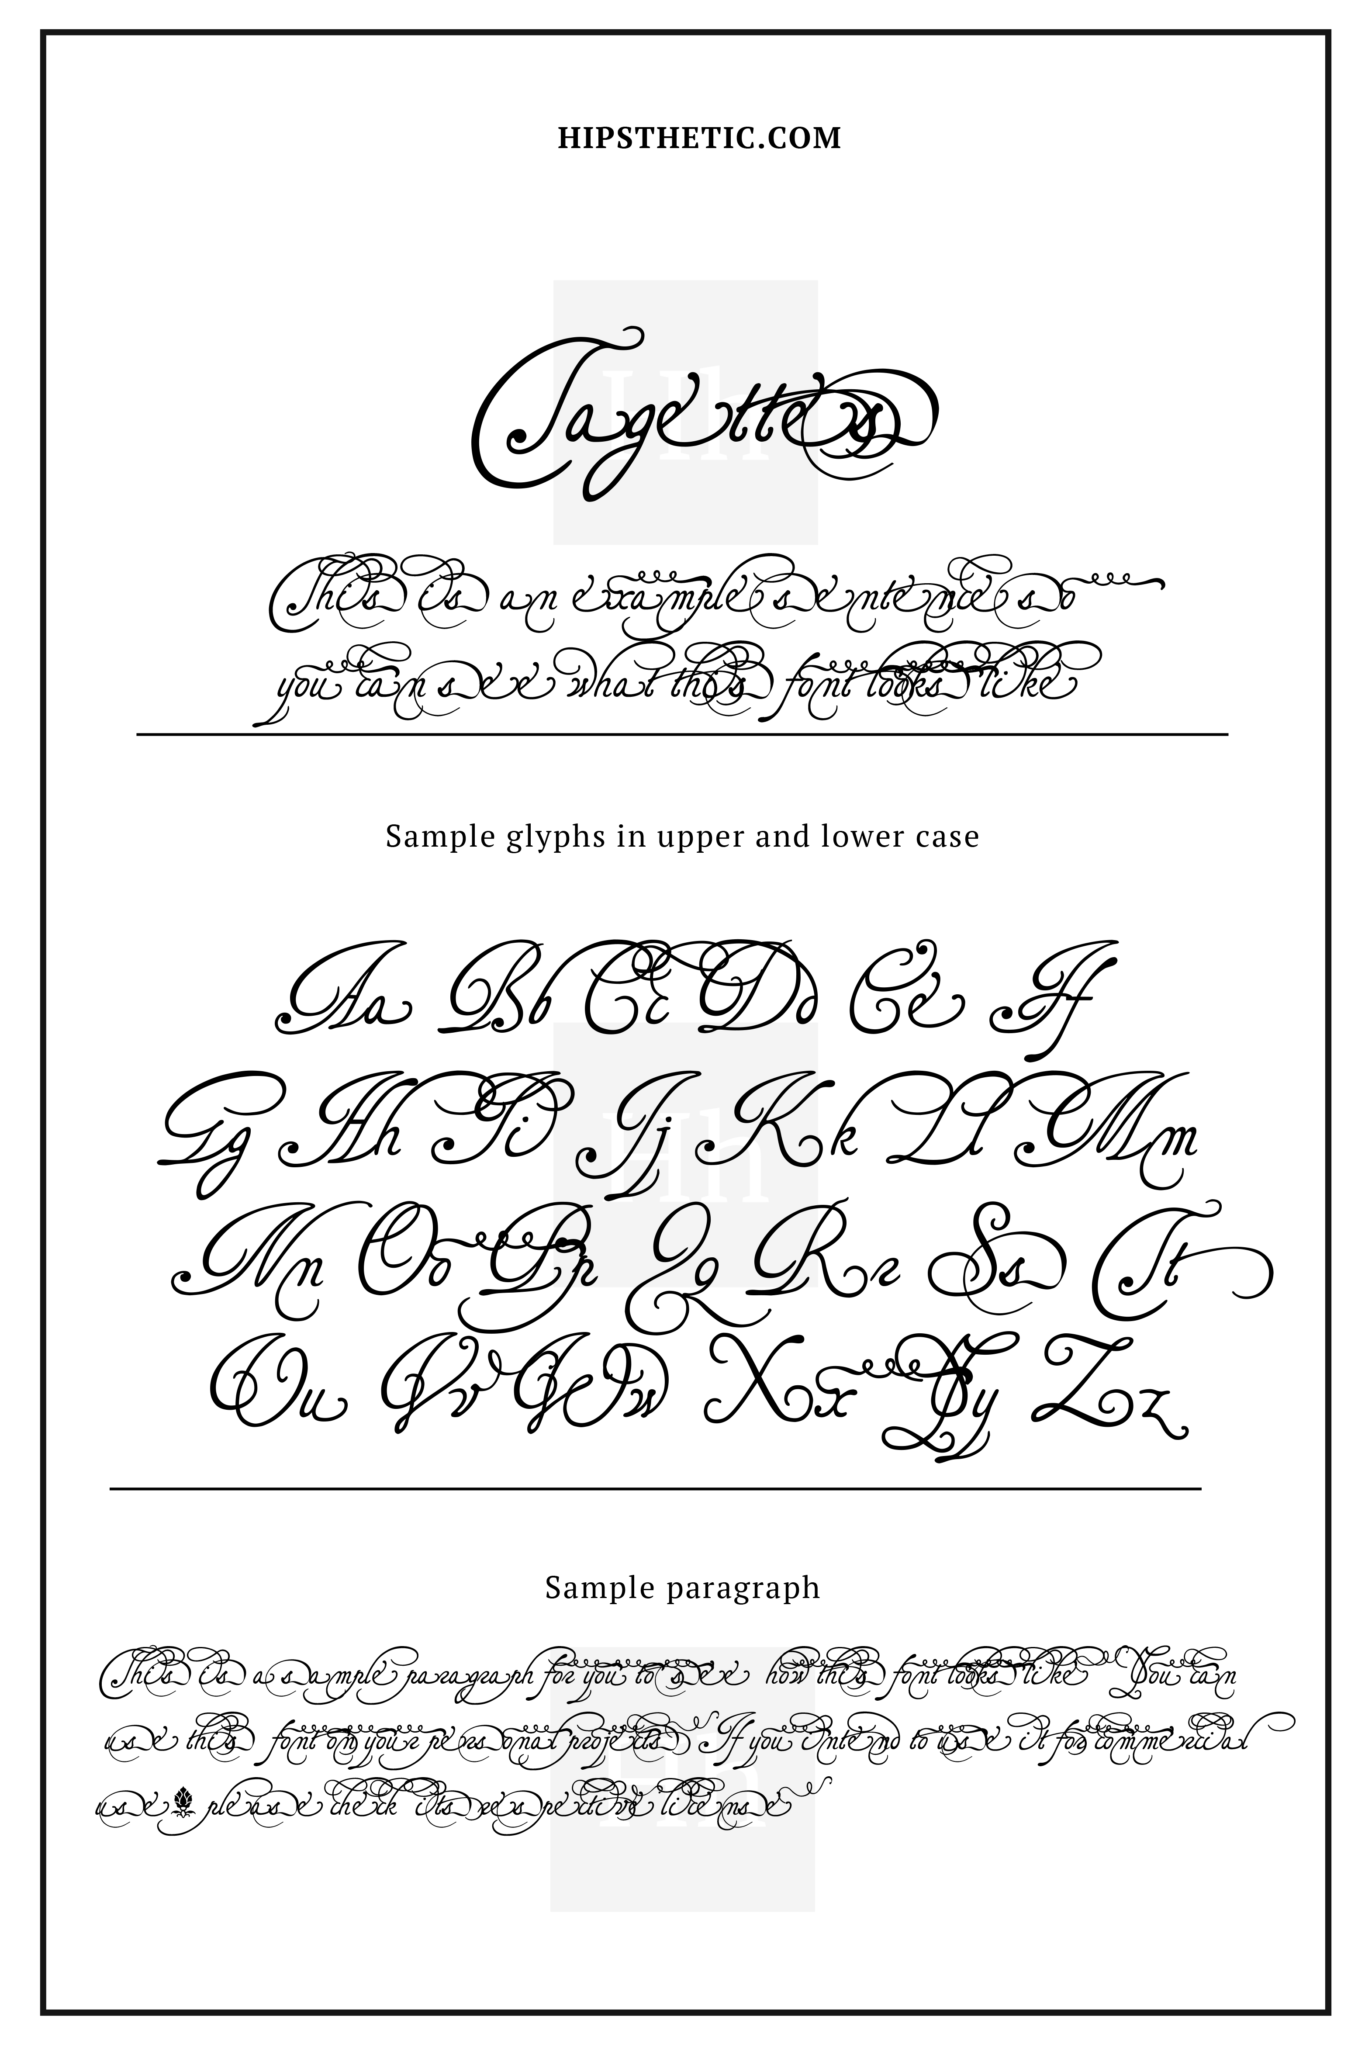 HIPSTHETIC.COM
Hh
Tagettes
This is an example sentence so
you can see what this font looks like
Sample glyphs in upper and lower case
Aa Bb Cc Dd Ee Ff
Hh
Gg Hh Ii Jj Kk Ll Mm
Nn Oo Pp Qq Rr Ss Tt
Uu Vv Ww Xx Yy Zz
Sample paragraph
This is a sample paragraph for you to see how this font looks like You can
use this font on your personal projects If you intend to use it for commercial
Hh
use please check its respective license